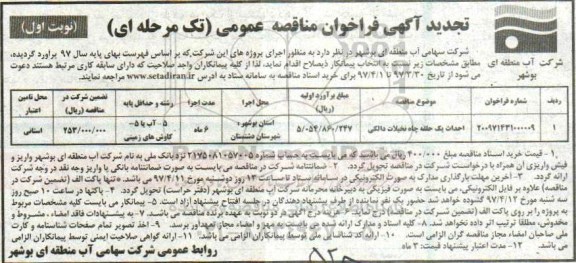 تجدید آگهی فراخوان مناقصه عمومی (تک مرحله ای)
(نوبت اول)
شرکت آب منطقه ای بوشهر
شرکت سهامی آب منطقه ای بوشهر در نظر دارد به منظور اجرای پروژه های این شرکت که بر اساس فهرست بهای پایه سال ۹۷ برآورد گردیده،
مطابق مشخصات زیر نسبت به انتخاب پیمانکار ذیصلاح اقدام نماید. لذا از کلیه پیمانکاران واجد صلاحیت که دارای سابقه کاری مرتبط هستند دعوت
می شود از تاریخ ۹۷/۳/۳۰ تا ۹۷/۴/۱ برای خرید اسناد مناقصه به سامانه ستاد به آدرس www.setadiran.ir مراجعه نمایند.
ردیف شماره فراخوان موضوع مناقصه مبلغ برآورد اولیه (ریال) محل اجرا مدت اجرا رشته و حداقل پایه تضمین شرکت در مناقصه (ریال) محل تامین اعتبار
۱ ۲۰۰۹۷۱۴۳۱۰۰۰۰۰۹ احداث یک حلقه چاه نخیلات مالکی ۵/۰۵۴/۸۶۰/۲۴۷ استان بوشهر، شهرستان دشتستان ۶ ماه ۵- آب یا ۵- کاوش های زمینی ۲۵۳/۰۰۰/۰۰۰ استانی
۱- قیمت خرید اسناد مناقصه مبلغ ۴۰۰/۰۰۰ ریال می باشد که می بایست به حساب شماره ۲۱۷۵۰۸۱۰۵۷۰۰۵ نزد بانک ملی به نام شرکت آب منطقه ای بوشهر واریز و
فیش واریزی آن همراه با درخواست شرکت در مناقصه تحویل گردد. ۲- ضمانتنامه شرکت در مناقصه می بایست به صورت ضمانتنامه بانکی یا واریز وجه نقد در وجه شرکت
ارائه گردد. ۳- آخرین مهلت بارگذاری مدارک به صورت الکترونیکی در سامانه ستاد تا ساعت ۱۳ روز دوشنبه مورخ ۹۷/۴/۱۱ می باشد. تنها پاکت الف (تضمین شرکت در
مناقصه) علاوه بر فایل الکترونیکی، می بایست به صورت فیزیکی به دبیرخانه محرمانه شرکت آب منطقه ای بوشهر (دفتر حراست) تحویل گردد. ۴- پاکتها در ساعت ۱۰ صبح روز
سه شنبه مورخ ۹۷/۴/۱۲ گشوده خواهد شد. حضور یک نفر نماینده از طرف پیشنهاد دهندگان در جلسه افتتاح پیشنهاد آزاد است. ۵- پیمانکار می بایست کلیه مشخصات مربوط
به پروژه را بر روی پاکت الف (تضمین شرکت در مناقصه) درج نماید. ۶- هزینه درج آگهی در دو نوبت به عهده برنده مناقصه می باشد. ۷- به پیشنهادات فاقد امضاء، مشروط و
مخدوش، مطلقا ترتیب اثر داده نخواهد شد. ۸- کلیه اسناد و مدارک ارائه شده می بایست به مهر و امضاء مجاز تعهدآور برسد. ۹- اخذ تصویر تمام صفحات شناسنامه و کارت
ملی صاحبان امضاء مجاز مناقصه گران الزامی است. ۱۰- ارائه کد شناسایی ملی توسط پیمانکاران الزامی می باشد. ۱۱- ارائه گواهی صلاحیت ایمنی توسط پیمانکاران الزامی
می باشد. ۱۲- مدت اعتبار پیشنهاد قیمت: ۳ ماه.
روابط عمومی شرکت سهامی آب منطقه ای بوشهر